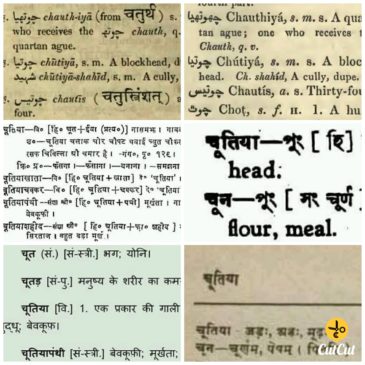 chauth-iyā (from चतुर्थ) s.
who receives the چوتھ chauth, q
quartan ague.
چوتیا chūtiyā, s. m. A blockhead, d
شہید chūtiyā-shahīd, s. m. A cully,
s. چوتیس chautīs (चतुस्त्रिंशत्)
four.
fourth part.
چوتھیا Chauthiyá, s. m. s. A qua
tan ague; one who receives t
Chauth, q. v.
چوتیا Chútiyá, s. m. s. A bloc
head. Ch. shahíd, A cully, dupe.
چوتیس Chautís, a. s. Thirty-four
چوٹ Choṭ, s. f. H. 1. A hu
चूतिया—वि० [हिं० चूत+ईया (प्रत्य०)] नासमझ। गाव
चूतियाखाता—वि० [हिं० चूतिया+खाता] दे० 'चूतिया'
चूतियाचक्कर—वि० [हिं० चूतिया+चक्कर] दे० 'चूतिया
चूतियापंथी—संज्ञा स्त्री० [हिं० चूतिया+पंथी] मूर्खता।
बेवकूफी।
चूतियाशहीद—संज्ञा पुं० [हिं० चूतिया+फ़ा० शहीद]
चूतिया—पूर [ हि ]
head.
चून—पूर [ सर चूर्ण
flour, meal.
चूत (सं.) [सं-स्त्री.] भग; योनि।
चूतड़ [सं-पु.] मनुष्य के शरीर का कम
चूतिया [वि.] 1. एक प्रकार की गाली
बुद्धू; बेवकूफ़।
चूतियापंथी [सं-स्त्री.] बेवकूफी; मूर्खता;
चूतिया
चूतिया - जडः, अज्ञः, मूढः
चून—चूर्णम्, पेषम् (पि
CutCut